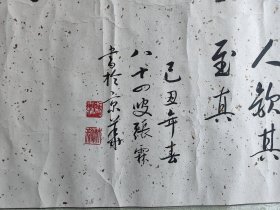 人欽其
至真
己丑年春
八十四叟張霖
書於京華